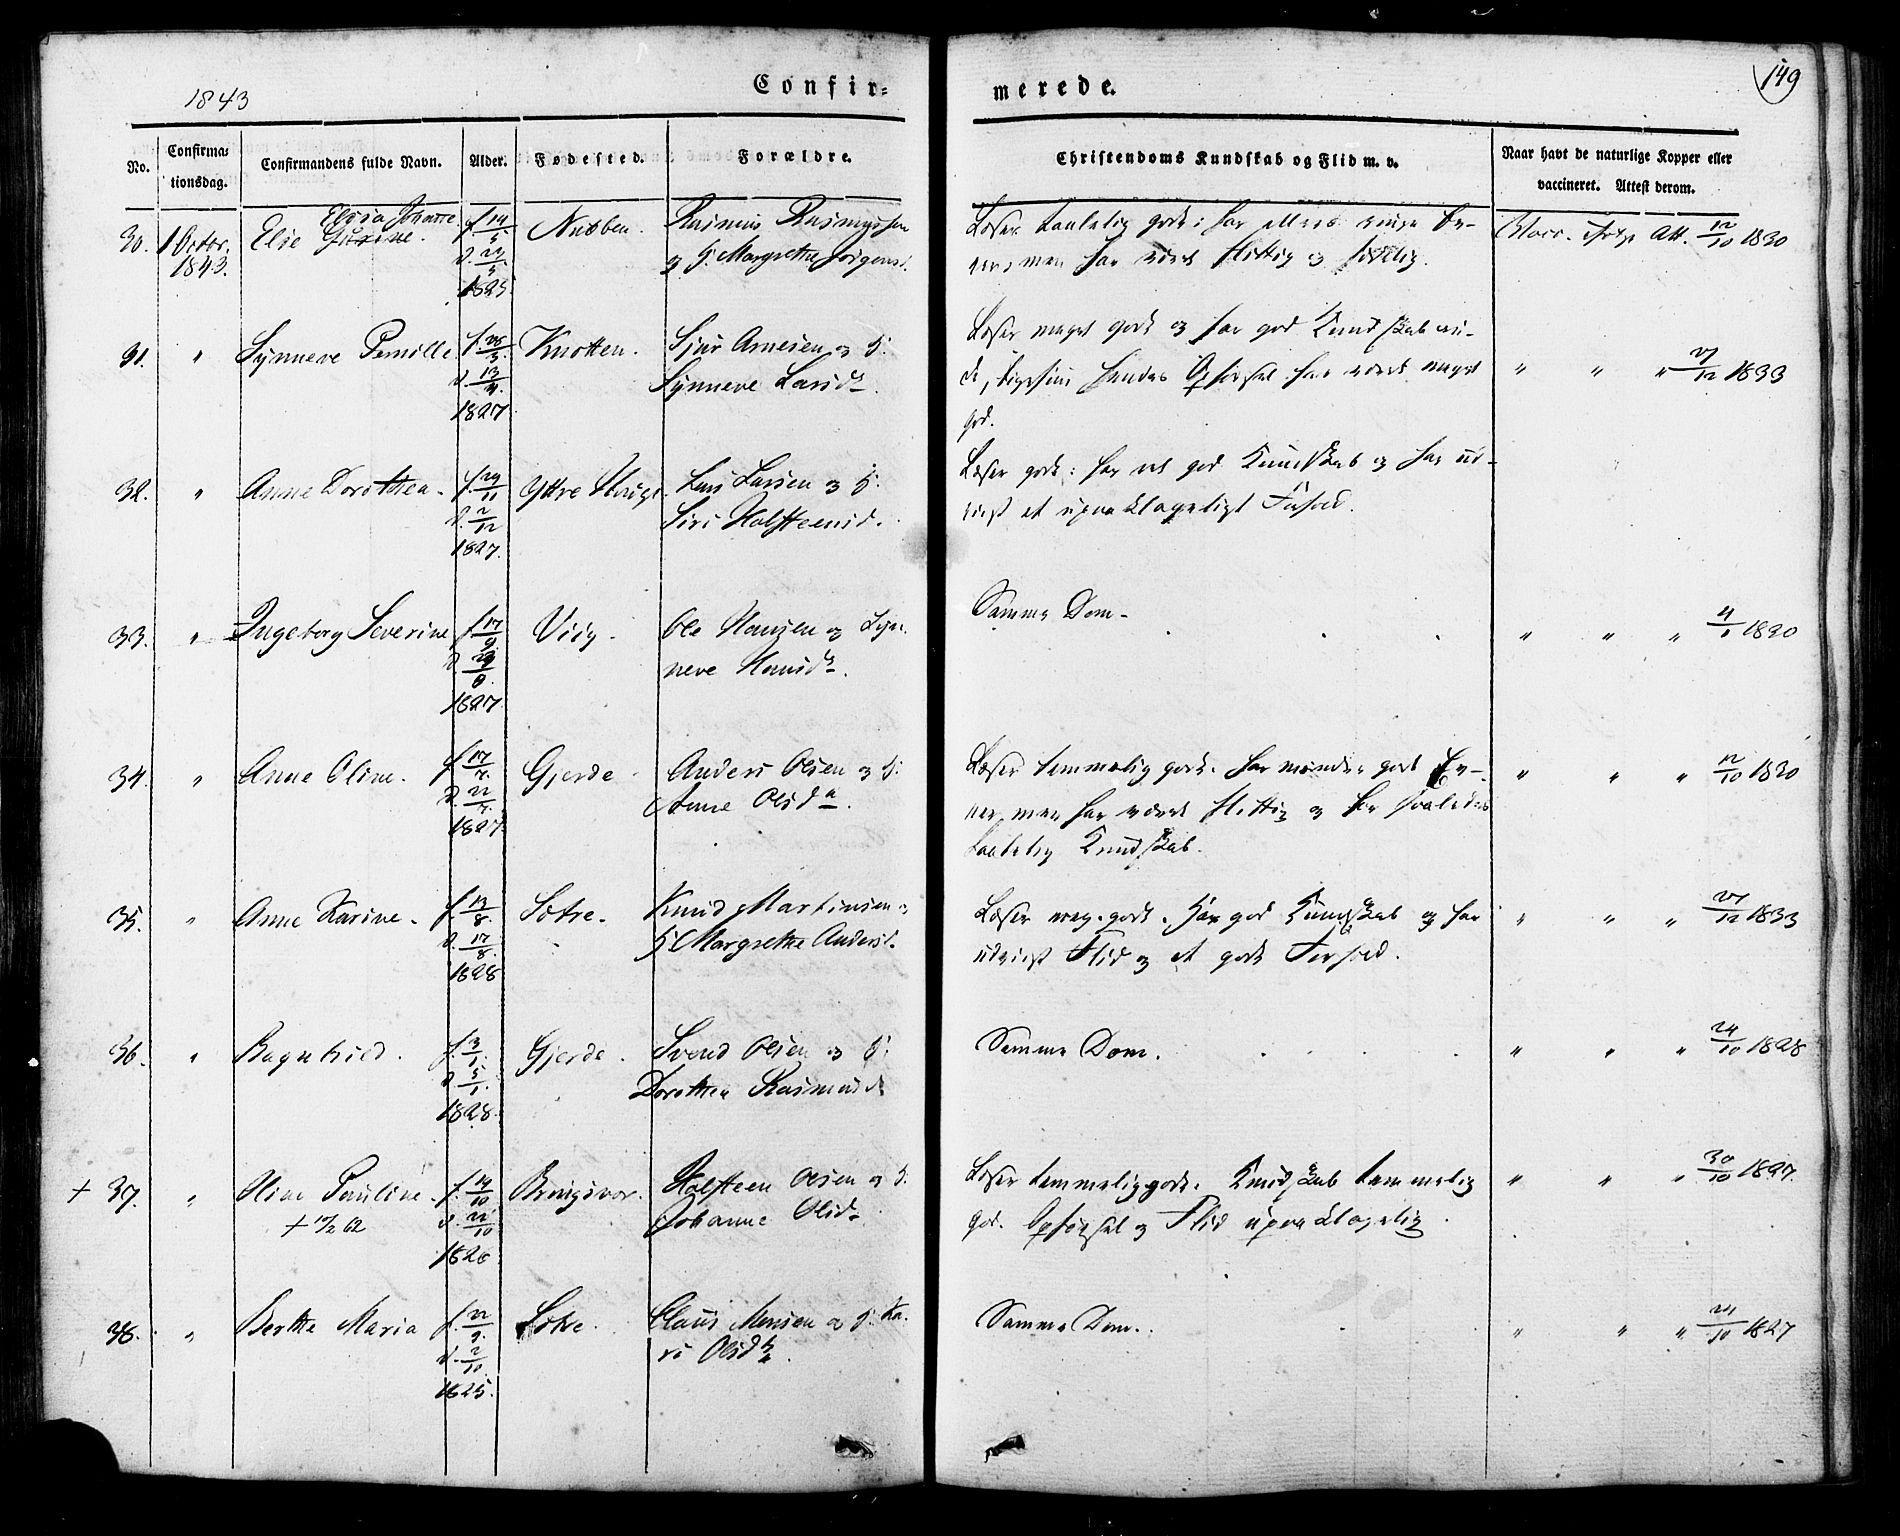 1843
Confir=
merede.
149
No.
Confirma=
tionsdag.
Confirmandens fulde Navn.
Alder.
Fødested.
Forældre.
Christendoms Kundskab og Flid m. v.
Naar havt de naturlige Kopper eller
vaccineret. Attest derom.
30. 1 Octbr. 1843. Else Gurine. f. 19/5 d. 29/5 1825. Nubben. Rasmus Rasmussen
og H. Margrethe Jørgensd.
Læser taalelig godt: har ellers ringe Ev-
ner, men har været flittig og sædelig.
Vacc. ifølge Att. 12/10 1830
31. " Synneve Pernille f. 28/3. d. 13/4. 1827. Knotten. Sjur Arnesen og H.
Synneve Larsdtr.
Læser meget godt og har god Kundskab
ligesom hendes Opførsel har været meget
god.
" " " 27/12 1833
32. " Anne Dorothea. f. 29/11 d. 2/12 1827. Yttre Lars Larsen og H.
Siri Holsteensd.
Læser godt: har ret god Kundskab og har ud-
viist et upaaklageligt Forhold.
33. " Ingeborg Severine f. 17/9. 1827. Viig. Ole Hansen og Syn-
neve Hansdtr.
Samme Dom.
" " " 1830
34. " Anne Oline. f. 17/7. d. 22/7. 1827. Gjerde. Anders Olsen og H.
Anne Olsdtr.
Læser temmelig godt. Har mindre gode Ev-
ner, men har været flittig og har saaledes
taalelig Kundskab.
" " " 12/10 1830
35. " Anne Karine. f. 13/8. d. 17/8. 1828 Sætre. Knud Martinsen og
H. Margrethe Andersd.
Læser meg. godt. Har god Kundskab og har
udviist Flid og et godt Forhold.
" " " 27/12 1833
36. " Ragnhild. f. 3/1. d. 5/1. 1828. Gjerde. Svend Olsen og H.
Dorothea Rasmusd.
Samme Dom.
" " " 24/10 1828
+ 37. " Oline Pauline. f. 19/10 d. 22/10 1826. Bringsvor. Holsteen Olsen og H.
Johanne Olsd.
Læser temmelig godt. Kundskab temmelig
god. Opførsel og Flid upaaklagelig.
" " " 30/10 1827.
38. " Berthe Maria f. 22/9. d. 2/10. 1825. Sætre. Claus Monsen og H. Ka-
ri Olsdtr.
Samme Dom.
" " " 24/10 1827